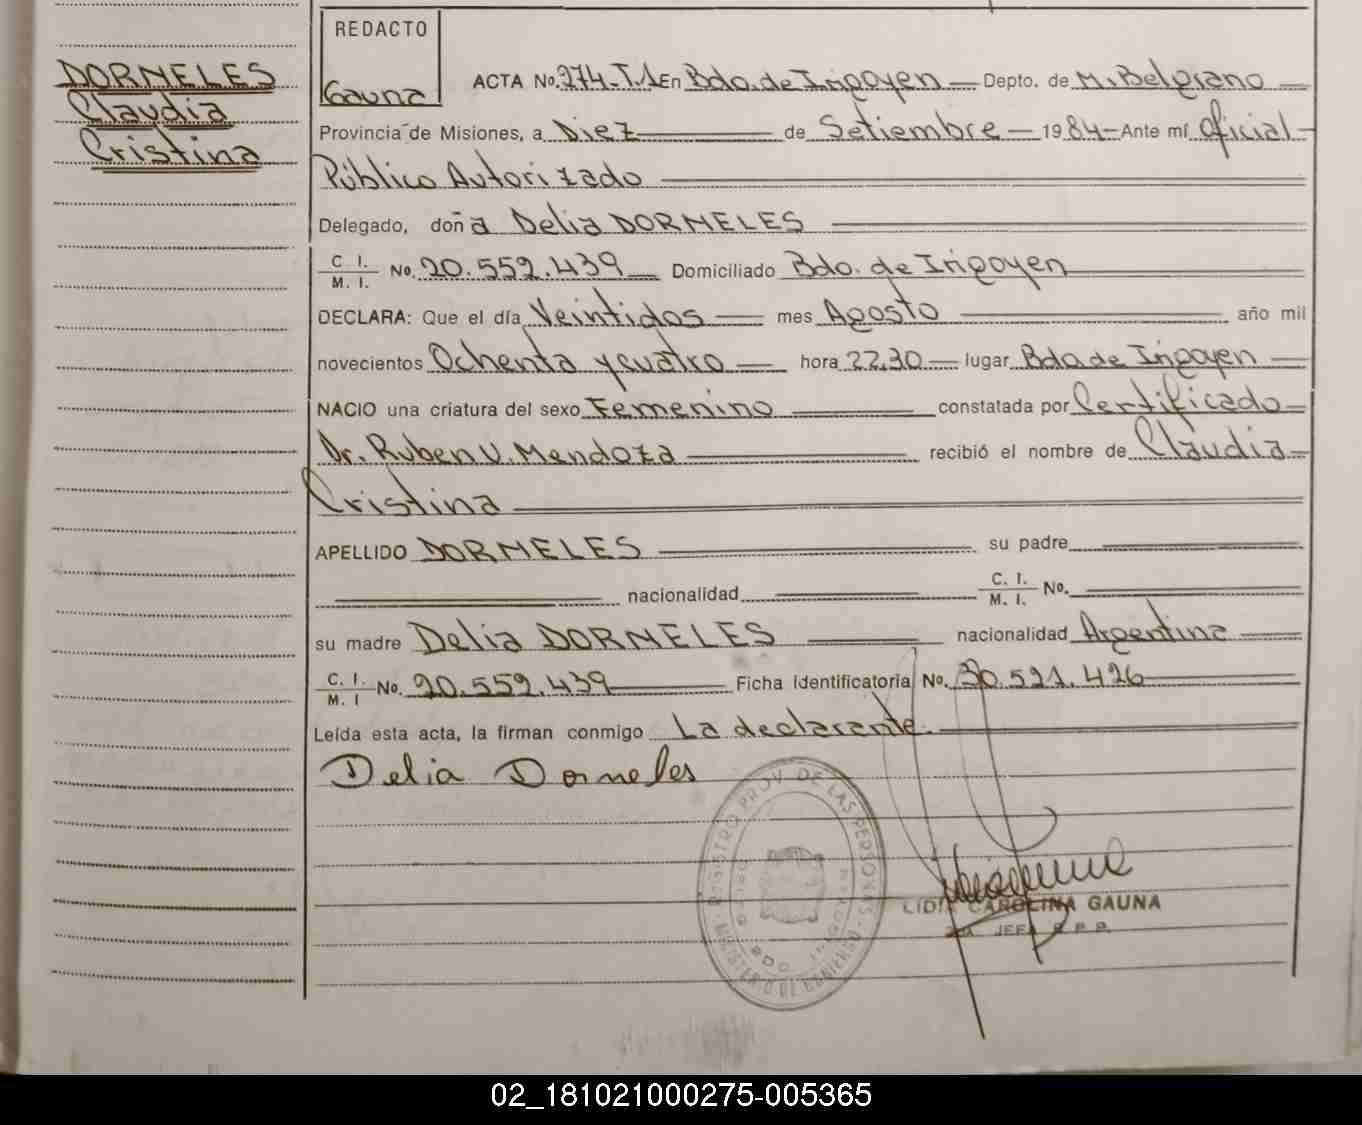 DORNELES
Claudia
Cristina
REDACTO
Gauna
ACTA No. 274-T.1 En Bdo. de Irigoyen Depto. de M. Belgrano
Provincia de Misiones, a Diez de Setiembre 1984 Ante mí Oficial
Público Autorizado
Delegado, doña Delia DORNELES
C. I. / M. I. No. 20.559.439 Domiciliado Bdo. de Irigoyen
DECLARA: Que el día Veintidos mes Agosto año mil
novecientos Ochenta y cuatro hora 22,30 lugar Bdo de Irigoyen
NACIO una criatura del sexo Femenino constatada por Certificado
Dr. Ruben V. Mendoza recibió el nombre de Claudia
Cristina
APELLIDO DORNELES su padre
nacionalidad C. I. / M. I. No.
su madre Delia DORNELES nacionalidad Argentina
C. I. / M. I No. 20.559.439 Ficha Identificatoria No. 30.521.426
Leída esta acta, la firman conmigo La declarante.
Delia Dorneles
REGISTRO PROV. DE LAS PERSONAS
MINISTERIO DE GOBIERNO
BDO
LIDIA CAROLINA GAUNA
JEFA R. P. P.
02_181021000275-005365